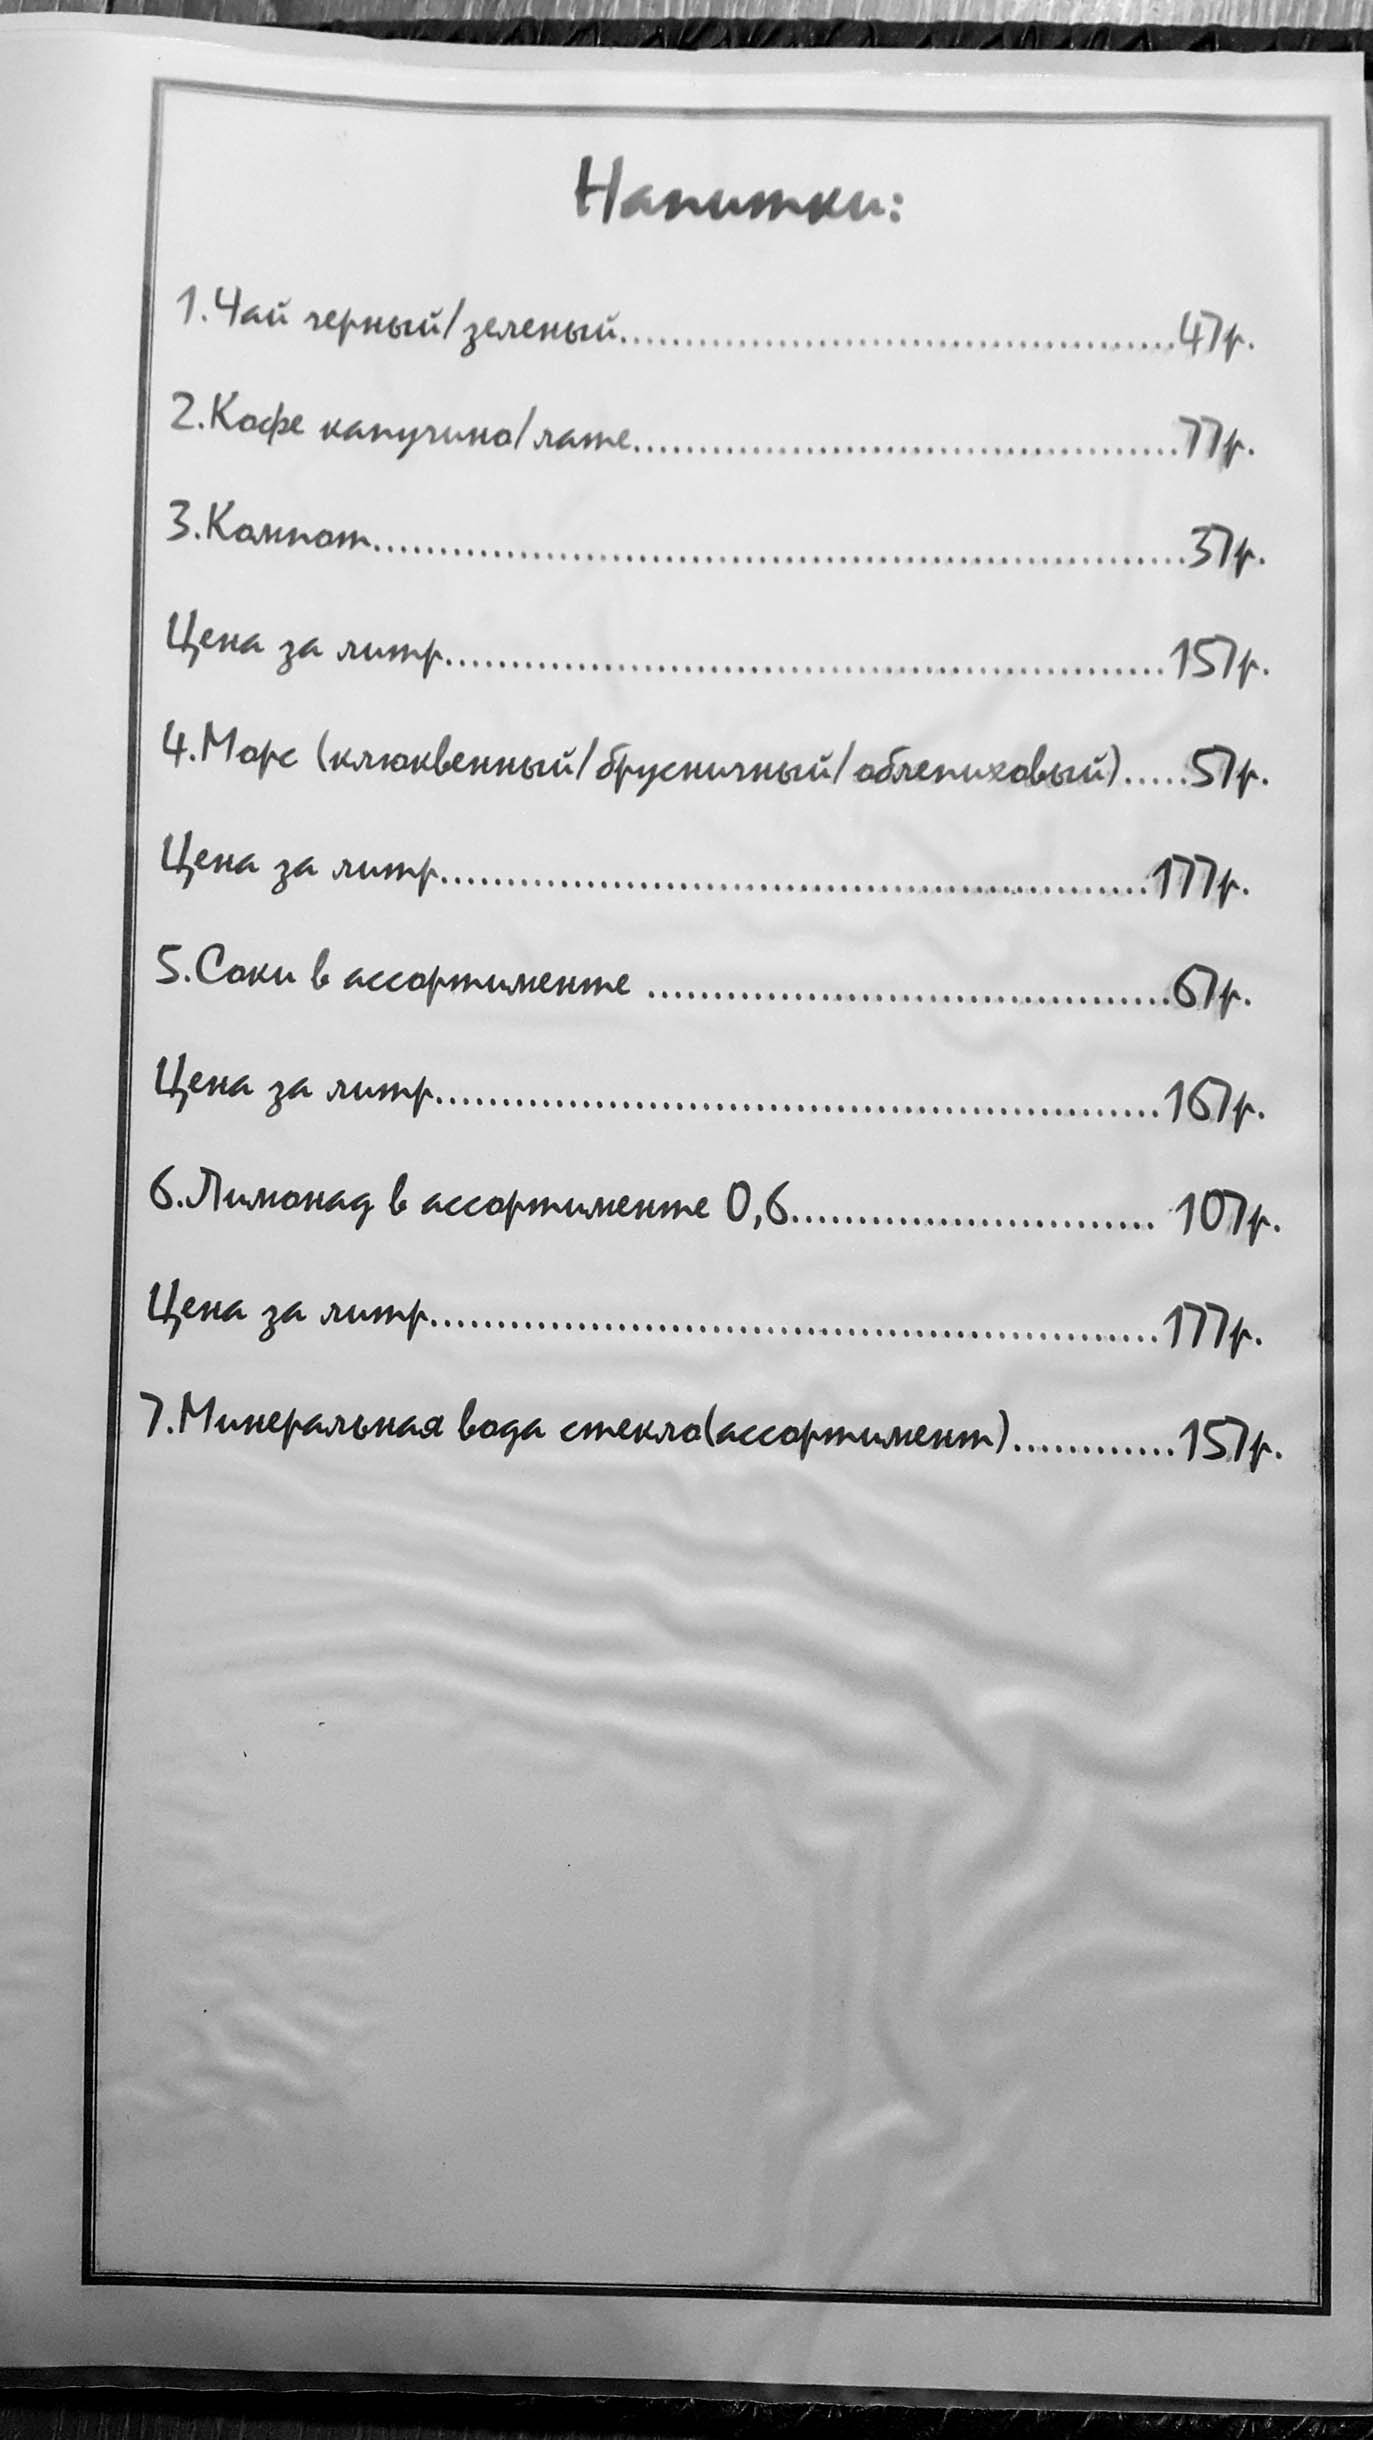 Напитки:
1.Чай черный/зеленый..........................................47р.
2.Кофе капучино/лате.........................................77р.
3.Компот.............................................................37р.
Цена за литр......................................................157р.
4.Морс (клюквенный/брусничный/облепиховый).....57р.
Цена за литр.....................................................177р.
5.Соки в ассортименте .......................................67р.
Цена за литр......................................................167р.
6.Лимонад в ассортименте 0,6........................... 107р.
Цена за литр......................................................177р.
7.Минеральная вода стекло(ассортимент)............157р.